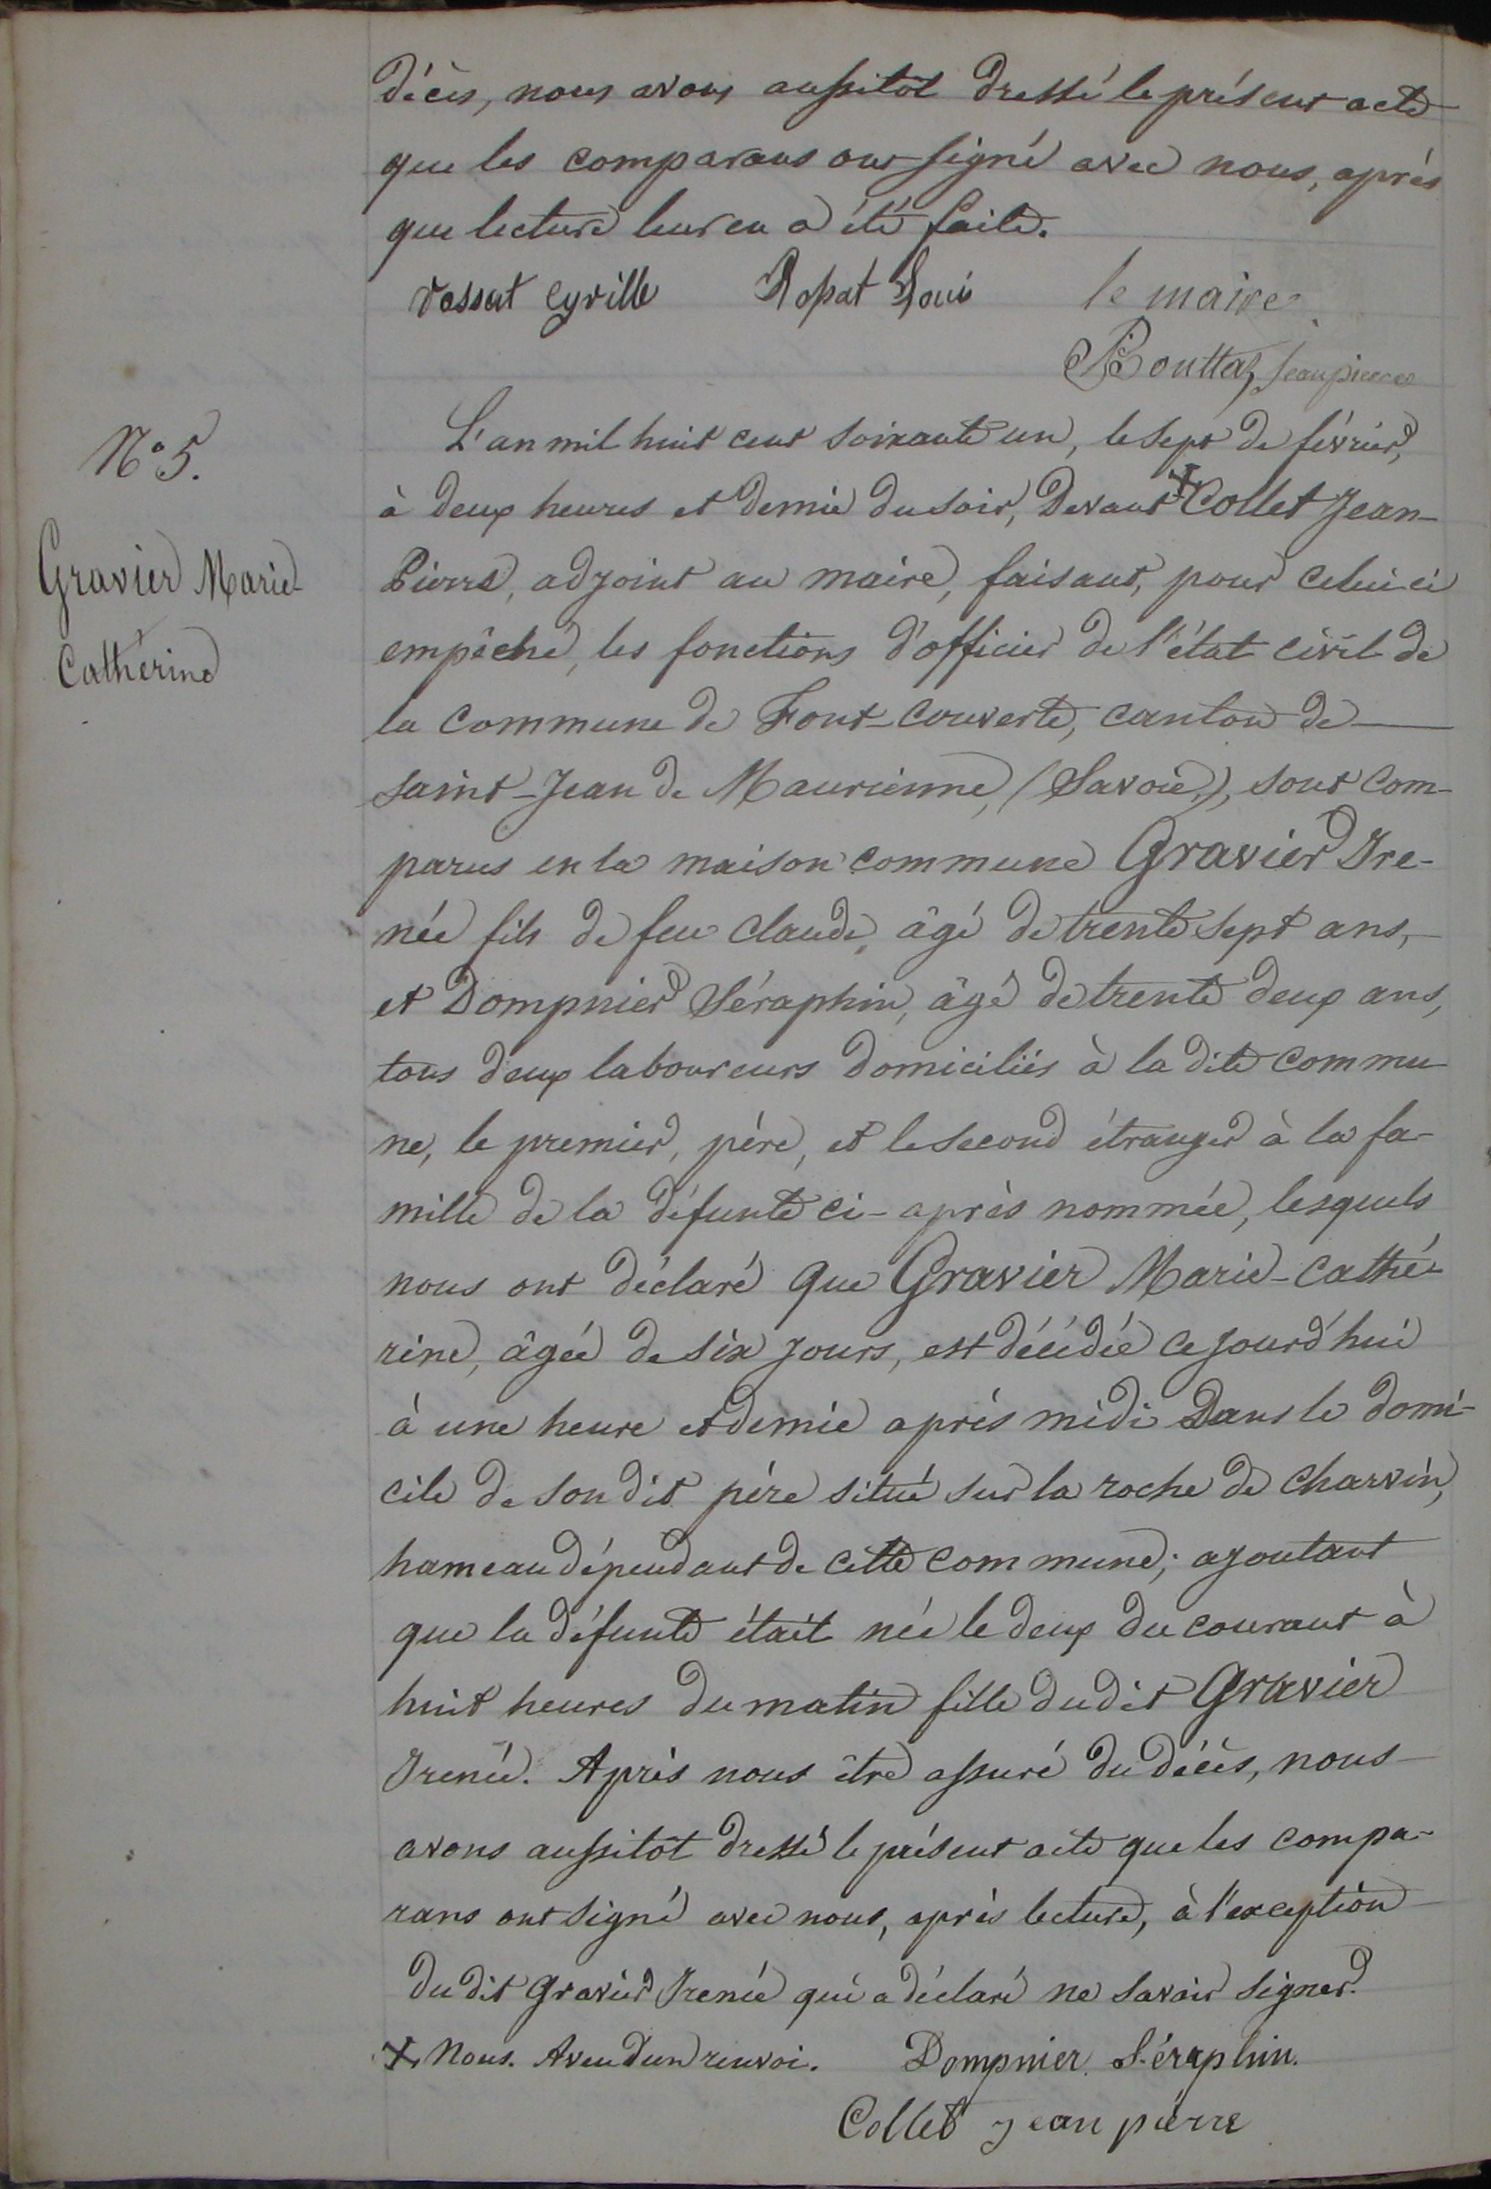 décès, nous avons aussitôt dressé le présent acte
que les comparans ont signé avec nous, après
que lecture leur en a été faite.
Vossat Cyrille Rossat Louis le maire
Bouttaz jean pierre
N° 5.
Gravier Marie-
Cathérine
L'an mil huit cent soixante un, le sept de février,
à deux heures et demie du soir, Devant + Collet Jean-
Pierre, adjoint au maire, faisant, pour celui ci
empêché, les fonctions d'officier de l'état civil de
la Commune de Font-Couverte, canton de
saint-Jean de Maurienne, (Savoie), sont com-
parus en la maison commune Gravier Ire-
née fils de feu Claude, âgé de trente sept ans,
et Dompnier Séraphin, âgé de trente deux ans,
tous deux laboureurs domiciliés à la dite commu-
ne, le premier, père, et le second étranger à la fa-
mille de la défunte ci-après nommée, lesquels
nous ont déclaré que Gravier Marie-Cathé-
rine, âgée de six jours, est décédée ce jourd'hui
à une heure et demie après midi Dans le domi-
cile de son dit père situé sur la roche de Charvin,
hameau dépendant de cette commune; ajoutant
que la défunte était née le deux du courant à
huit heures du matin fille du dit Gravier
Irenée. Après nous être assuré du décès, nous
avons aussitôt dressé le présent acte que les compa-
rans ont signé avec nous, après lecture, à l'exception
du dit Gravier Irenée qui a déclaré ne savoir signer.
+ Nous. Aveu d'un renvoi. Dompnier Séraphin.
Collet jean pierre